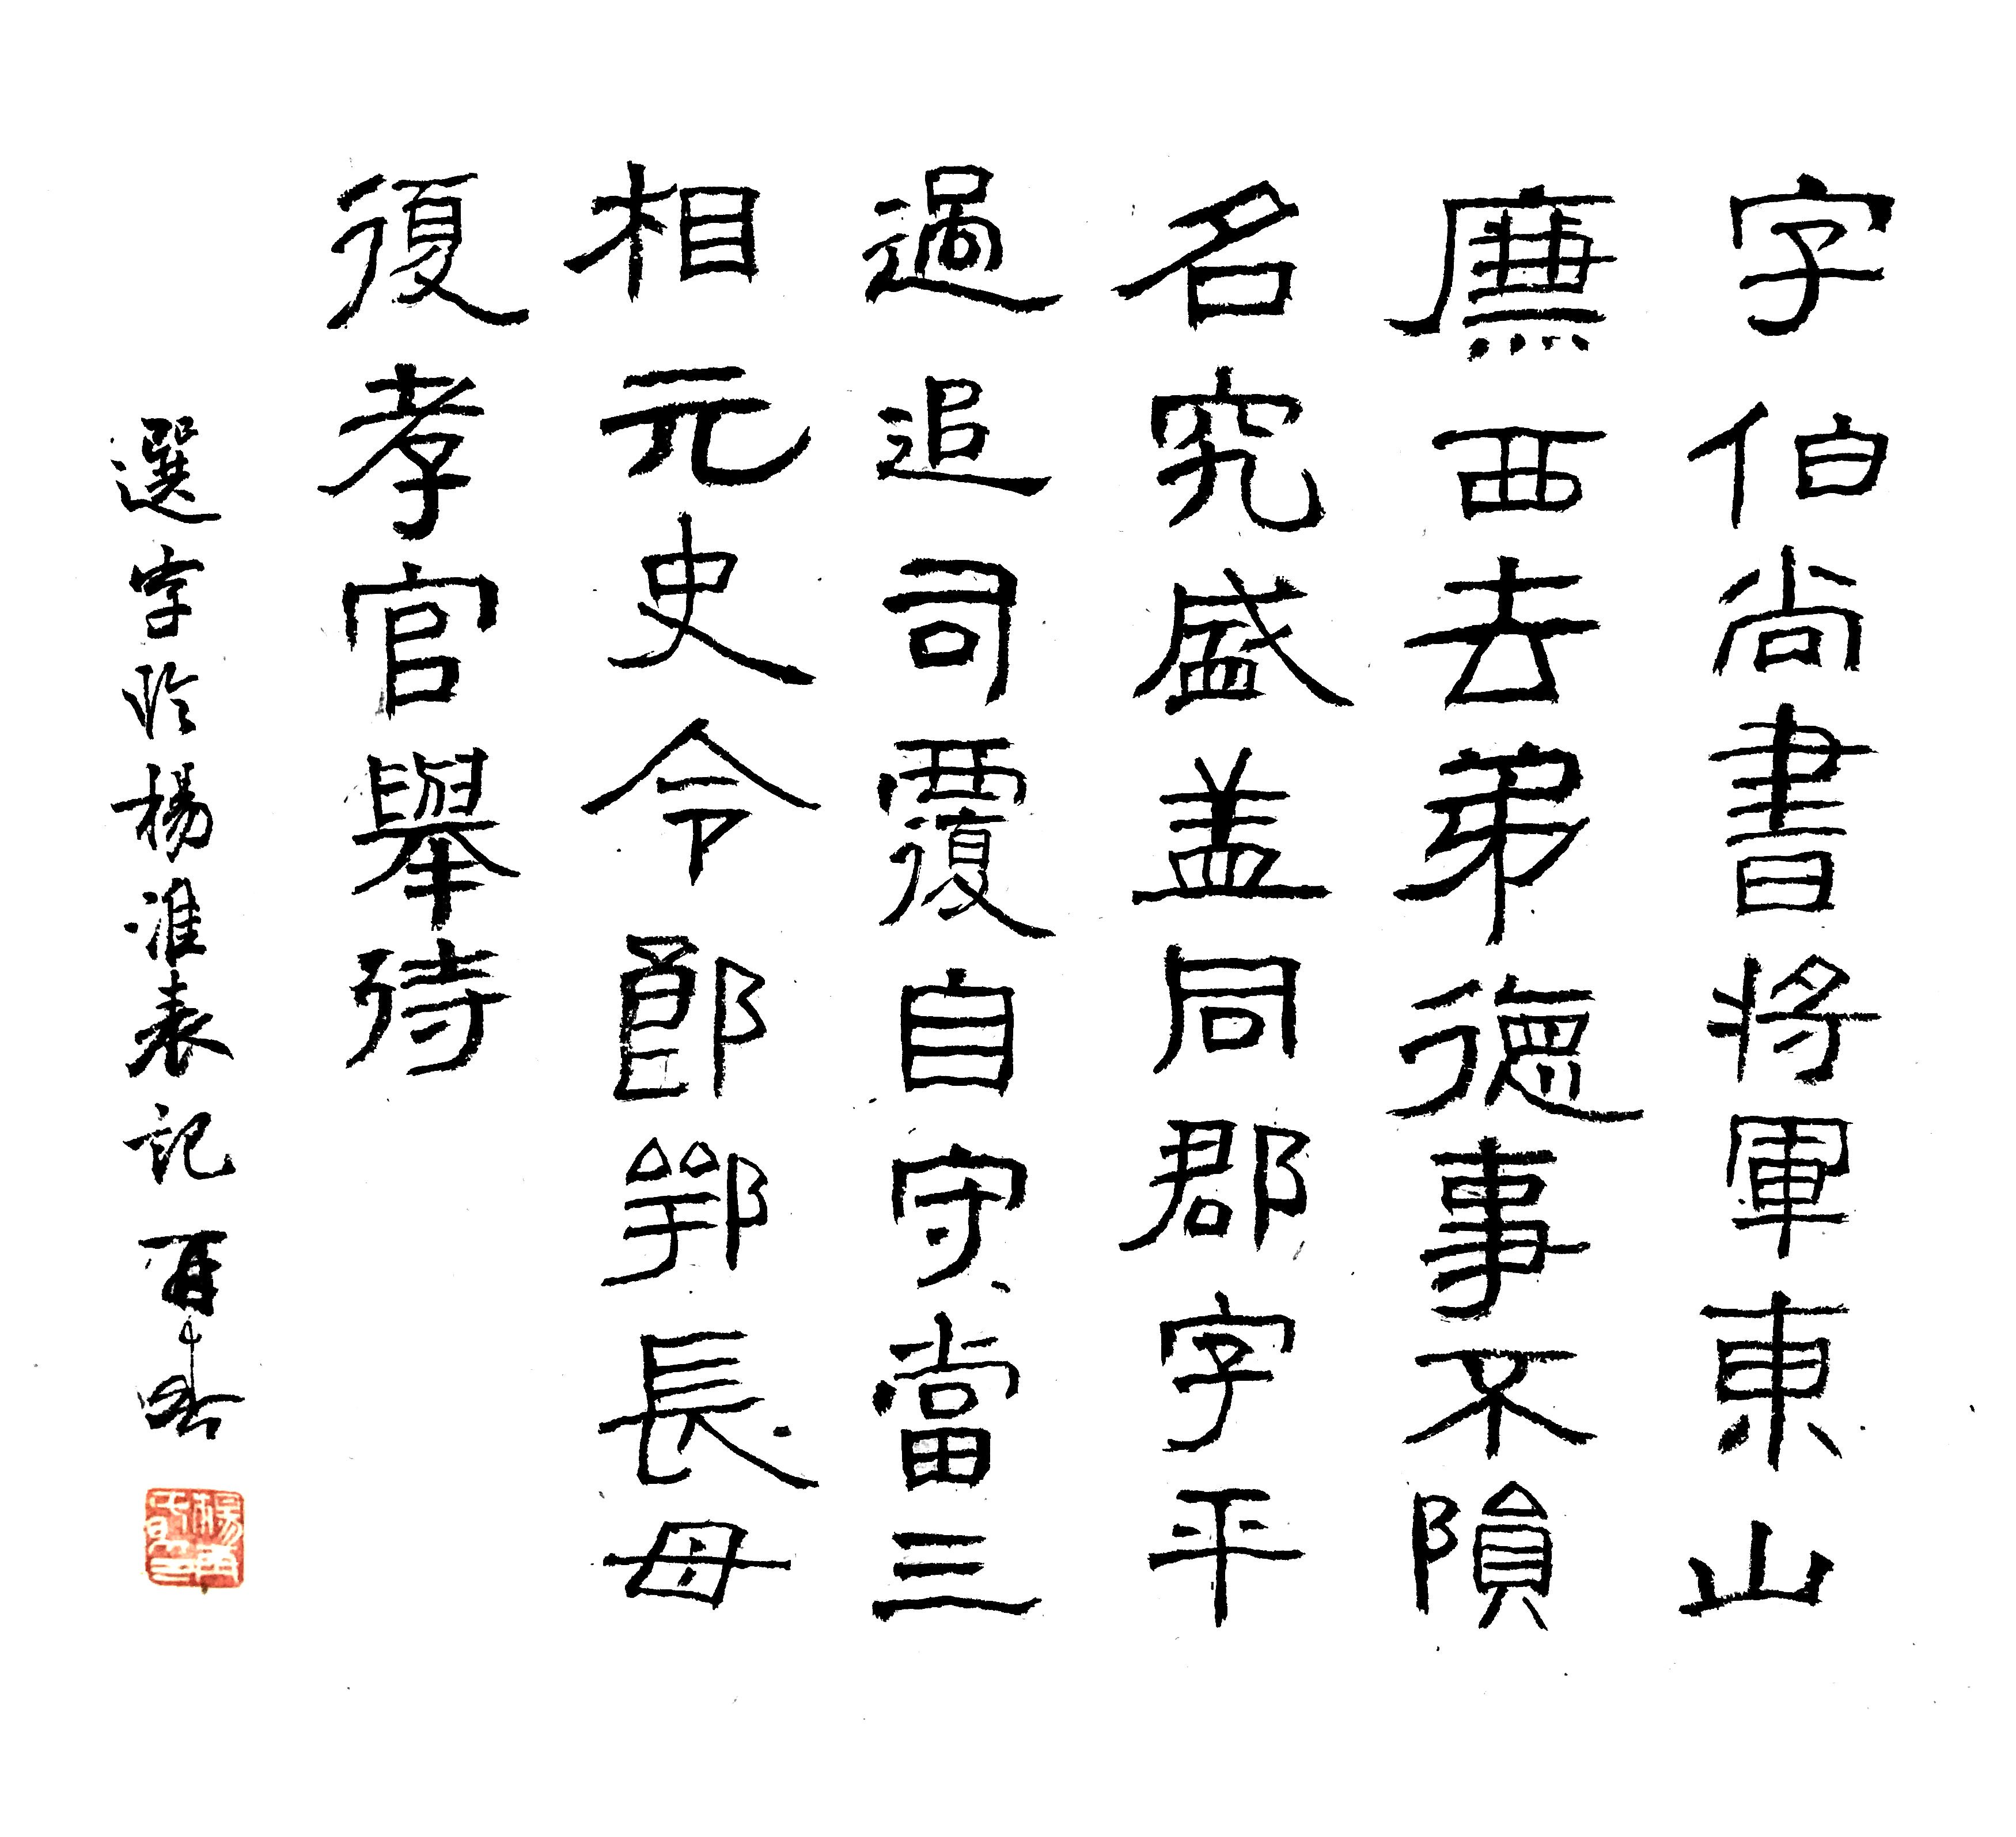 字伯尚書将軍東山
廉西去弟德事不隕
名究盛盖同郡字平
過追司覆自守當三
相元史令郎鄂長母
復孝官舉待
選字临楊淮表記再春